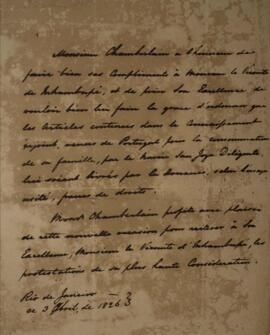 Monsieur Chamberlain a l'honneur de
faire bien ses Compliments à Monsieur le Vicomte
de Inhambupe, et de prier Son Excellence de
vouloir bien lui faire la grace d'ordonner que
les Articles contenus dans le Connaissement
rejoint, venus de Portugal pour la consommation
de sa famille, par le Navire San Jozé Diligente,
lui soient livrés par la Douane, selon l'usage
usité, francs de droits.
Monsr Chamberlain profite avec plaisir
de cette nouvelle occasion pour réiterer à Son
Excellence, Monsieur le Vicomte d'Inhambupe, les
protestations de sa plus haute Considération.
Rio de Janeiro
ce 3 Avril, de 1826